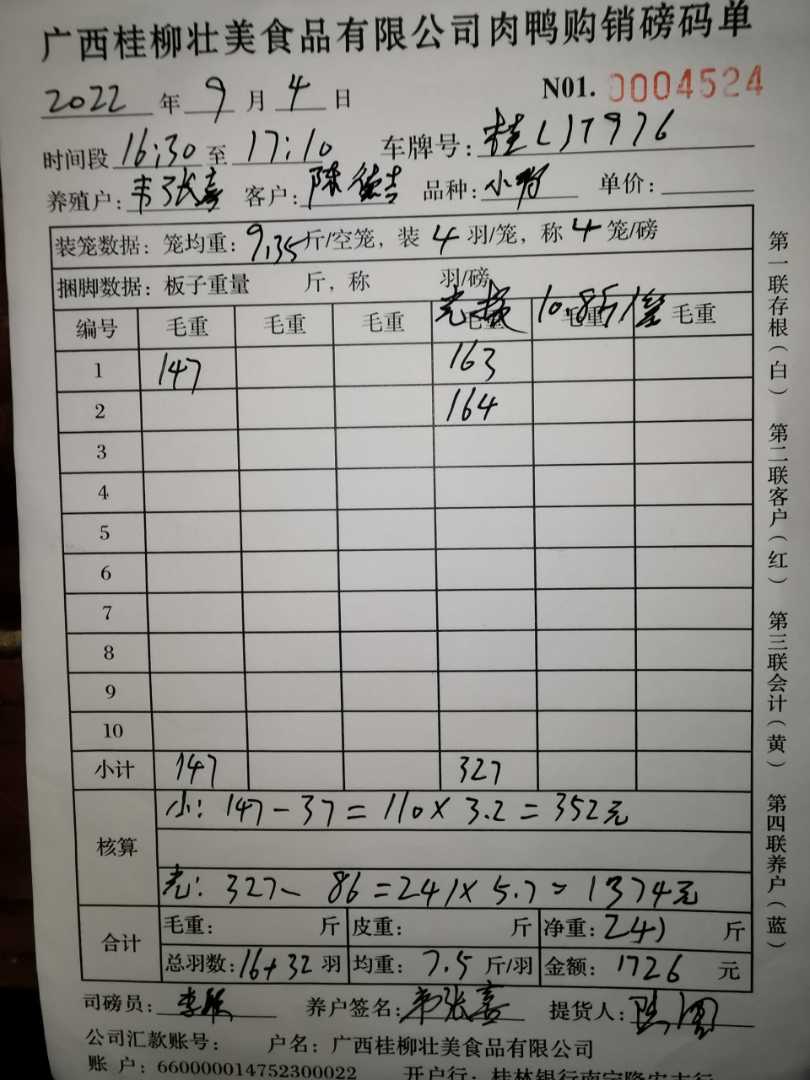 广西桂柳壮美食品有限公司肉鸭购销磅码单
2022 年 9 月 4 日 N01. 0004524
时间段 16:30 至 17:10 车牌号: 桂LJT976
养殖户: 韦张喜 客户: 陈德吉 品种: 小 单价:
装笼数据: 笼均重: 9.35 斤/空笼, 装 4 羽/笼, 称 4 笼/磅
捆脚数据: 板子重量 斤, 称 羽/磅
编号 毛重 毛重 毛重 毛重 10.8斤/笼 毛重 毛重
1 147 163
2 164
3
4
5
6
7
8
9
10
小计 147 327
核算
小: 147-37=110×3.2=352元
光: 327-86=241×5.7=1374元
合计
毛重: 斤 皮重: 斤 净重: 241 斤
总羽数: 16+32 羽 均重: 7.5 斤/羽 金额: 1726 元
司磅员: 李 养户签名: 韦张喜 提货人: 陈
公司汇款账号: 户名: 广西桂柳壮美食品有限公司
账 户: 660000014752300022 开户行: 桂林银行南宁隆安支行
第一联存根(白) 第二联客户(红) 第三联会计(黄) 第四联养户(蓝)